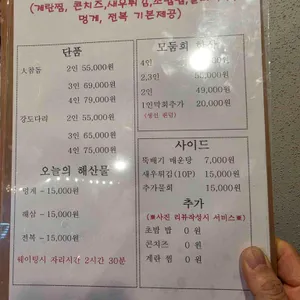 (계란찜, 콘치즈, 새우튀김, 초밥밥,
멍게, 전복 기본제공)
단품
大광동 2인 55,000원
3인 69,000원
4인 79,000원
강도다리 2인 55,000원
3인 65,000원
4인 75,000원
오늘의 해산물
멍게 - 15,000원
해삼 - 15,000원
전복 - 15,000원
웨이팅시 자리시간 2시간 30분
모둠회
4인
2,3인
2인 49,000원
1인막회추가 20,000원
사이드
뚝배기 매운탕 7,000원
새우튀김(10P) 15,000원
추가물회 15,000원
추가
※사진 리뷰작성시 서비스※
초밥 밥 0 원
콘치즈 0 원
계란 찜 0 원